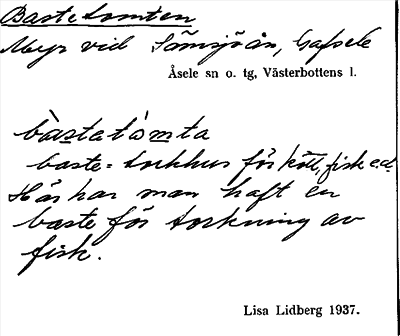 Bastetomten
Myr vid Sämsjöån, Gafsele
Åsele sn o. tg, Västerbottens l.
bàstetòmta
baste = torkhus för kött, fisk e.d.
Här har man haft en
baste för torkning av
fisk.
Lisa Lidberg 1937.